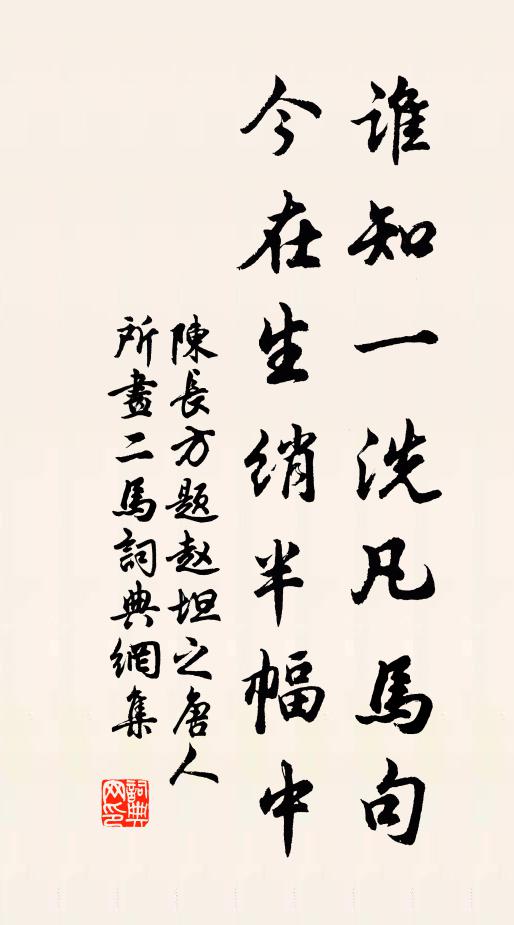 誰知一洗凡馬句
今在生綃半幅中
陳長方題赵坦之唐人
所畫二馬詞典網集
詞典网印